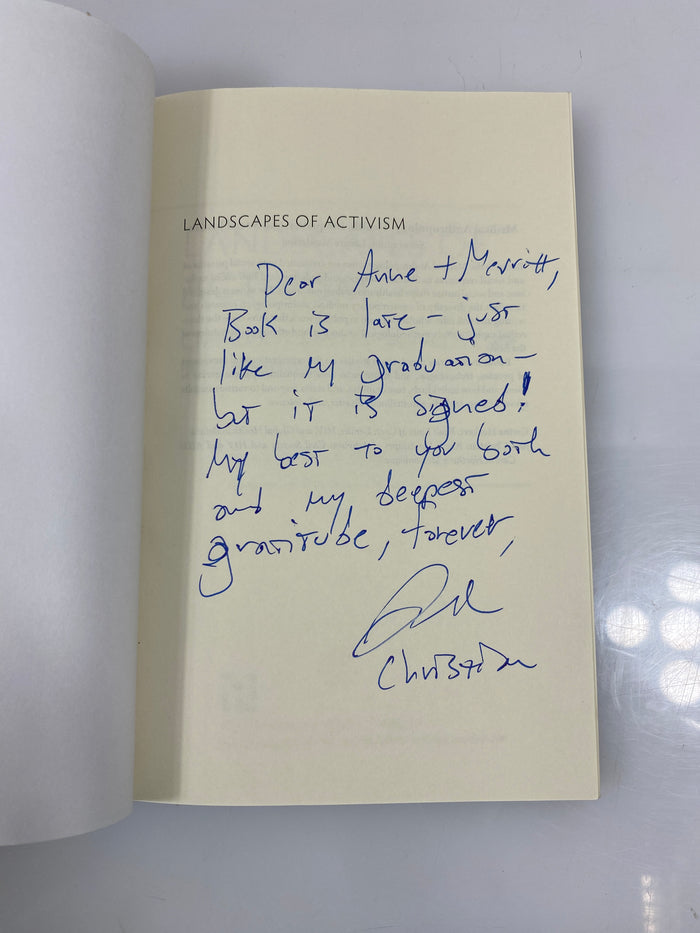 LANDSCAPES OF ACTIVISM
Dear Anne + Merritt,
Book is late – just
like my graduation –
but it is signed!
My best to you both
and my deepest
gratitude, forever,
Christian